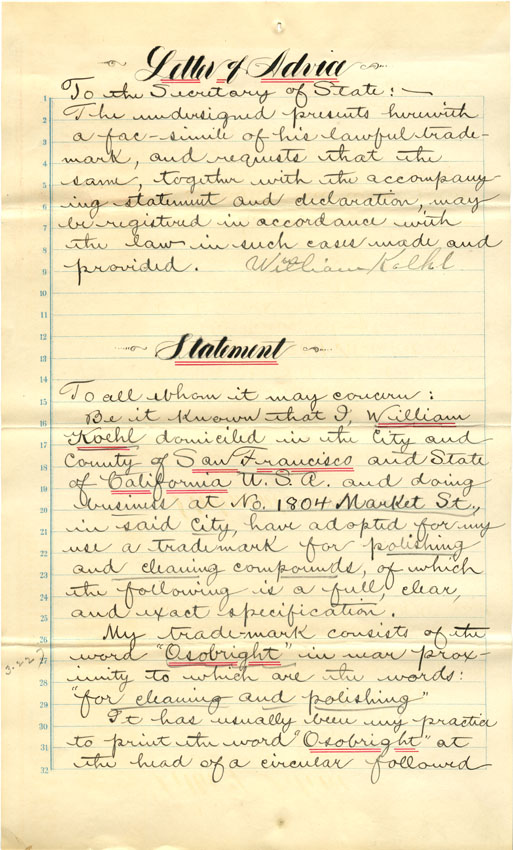 Letter of Advice
To the Secretary of State:—
The undersigned presents herewith
a fac-simile of his lawful trade-
mark, and requests that the
same, together with the accompany
ing statement and declaration, may
be registered in accordance with
the law in such cases made and
provided. William Koehl
Statement
To all whom it may concern:
Be it known that I, William
Koehl domiciled in the City and
County of San Francisco and State
of California U.S.A. and doing
business at No. 1804 Market St.,
in said City, have adopted for my
use a trademark for polishing
and cleaning compounds, of which
the following is a full, clear,
and exact specification.
My trade-mark consists of the
word "Osobright" in near prox-
imity to which are the words:
"for cleaning and polishing"
It has usually been my practice
to print the word "Osobright" at
the head of a circular followed
1
2
3
4
5
6
7
8
9
10
11
12
13
14
15
16
17
18
19
20
21
22
23
24
25
26
27
28
29
30
31
32